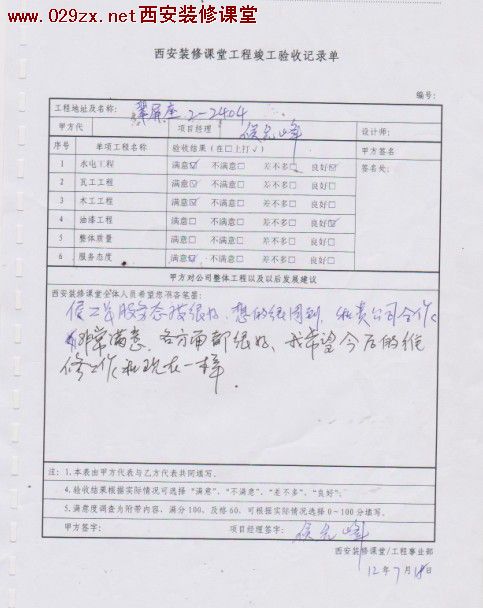 www.029zx.net西安装修课堂
西安装修课堂工程竣工验收记录单
编号:
工程地址及名称: 翠屏座 2-2404
甲方代 项目经理 侯先峰 设计师:
序号 单项工程名称 验收结果(在□上打√) 甲方签名
1 水电工程 满意☑ 不满意□ 差不多□ 良好☑ 签名处:
2 瓦工工程 满意☑ 不满意□ 差不多□ 良好□
3 木工工程 满意☑ 不满意□ 差不多□ 良好□
4 油漆工程 满意□ 不满意□ 差不多□ 良好☑
5 整体质量 满意□ 不满意□ 差不多□ 良好□
6 服务态度 满意☑ 不满意□ 差不多□ 良好□
甲方对公司整体工程以及以后发展建议
西安装修课堂全体人员希望您准备笔墨:
侯工长服务态度很好、想的很周到,和贵公司合作
非常满意、各方面都很好、我希望今后的维
修工作和现在一样.
注:1.本表由甲方代表与乙方代表共同填写。
4.验收结果根据实际情况可选择“满意”、“不满意”、“差不多”、“良好”。
5.满意度调查为附带内容,满分100,及格60,可根据实际情况选择0~100分填写。
甲方签字: 项目经理签字: 侯先峰
西安装修课堂/工程事业部
12年7月18日